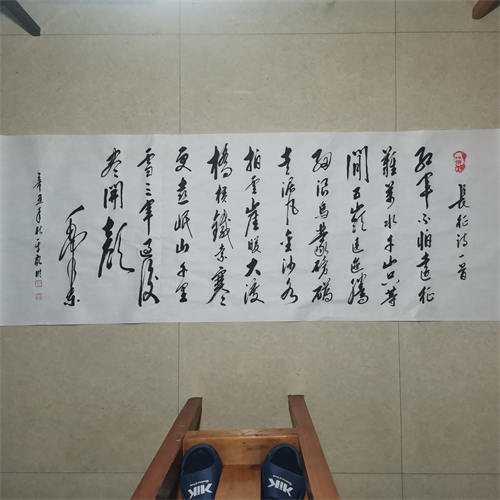 長征詩一首
紅軍不怕遠征
難萬水千山只等
閒五嶺逶迤騰
細浪烏蒙磅礴
走泥丸金沙水
拍雲崖暖大渡
橋橫鐵索寒
更喜岷山千里
雪三軍過後
尽開顏
毛澤東
辛丑年秋